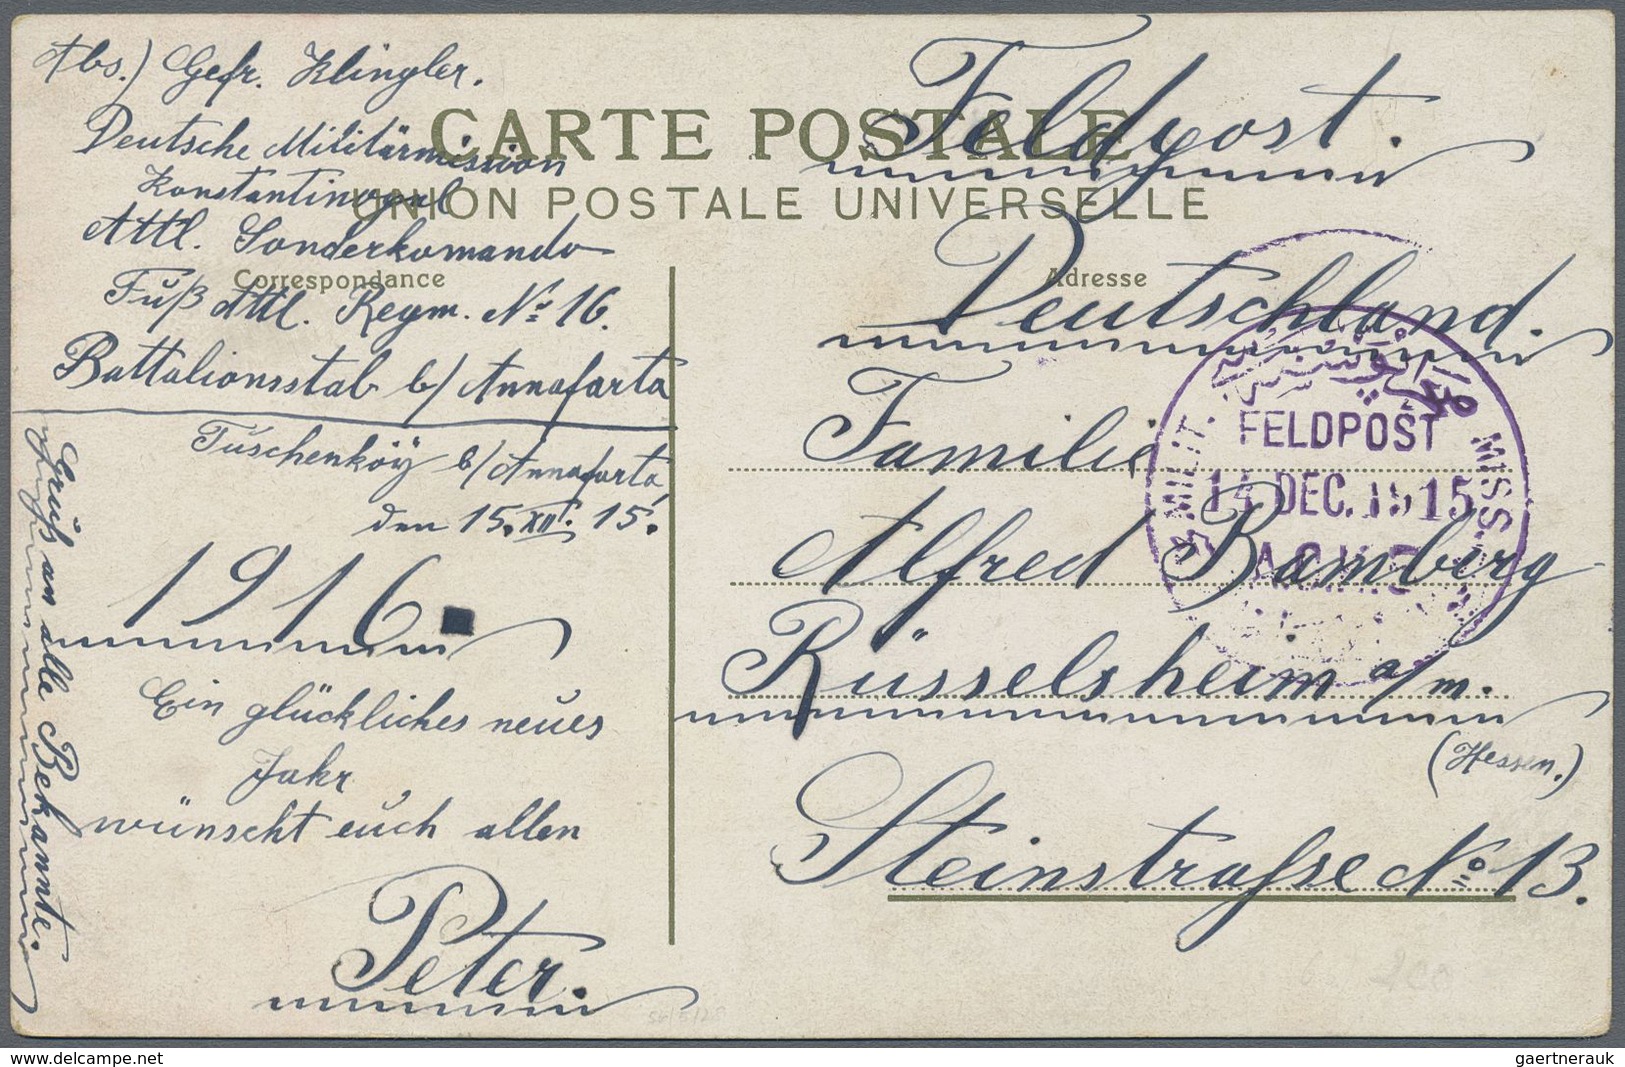 Abs.) Gefr. Klingler.
Deutsche Militärmission
Konstantinopel
Attl. Sonderkomando
Fuß Attl. Regm. No 16.
Battalionsstab b/ Annafarta
Tuschenköÿ b/ Annafarta
den 15. XII. 15.
1916.
Ein glückliches neues
Jahr
wünscht euch allen
Peter.
Gruß an alle Bekannte.
CARTE POSTALE
UNION POSTALE UNIVERSELLE
Correspondance
Adresse
Feldpost.
Deutschland.
Familie
Alfred Bamberg
Rüsselsheim a/m.
(Hessen.)
Steinstraße No 13.
MILIT. MISS.
FELDPOST
14 DEC. 1515
gaertnerauk@delcampe.net